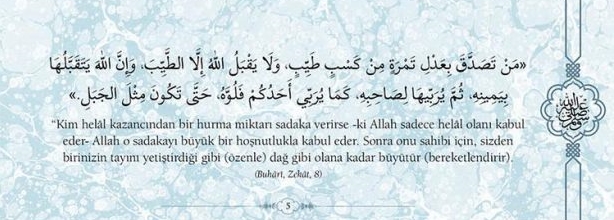 «مَنْ تَصَدَّقَ بِعَدْلِ تَمْرَةٍ مِنْ كَسْبٍ طَيِّبٍ، وَلَا يَقْبَلُ اللهُ إِلَّا الطَّيِّبَ، وَإِنَّ اللهَ يَتَقَبَّلُهَا
بِيَمِينِهِ، ثُمَّ يُرَبِّيهَا لِصَاحِبِهِ، كَمَا يُرَبِّي أَحَدُكُمْ فَلُوَّهُ، حَتَّى تَكُونَ مِثْلَ الجَبَلِ.»
“Kim helâl kazancından bir hurma miktarı sadaka verirse -ki Allah sadece helâl olanı kabul
eder- Allah o sadakayı büyük bir hoşnutlukla kabul eder. Sonra onu sahibi için, sizden
birinizin tayını yetiştirdiği gibi (özenle) dağ gibi olana kadar büyütür (bereketlendirir).
(Buhârî, Zekât, 8)
5